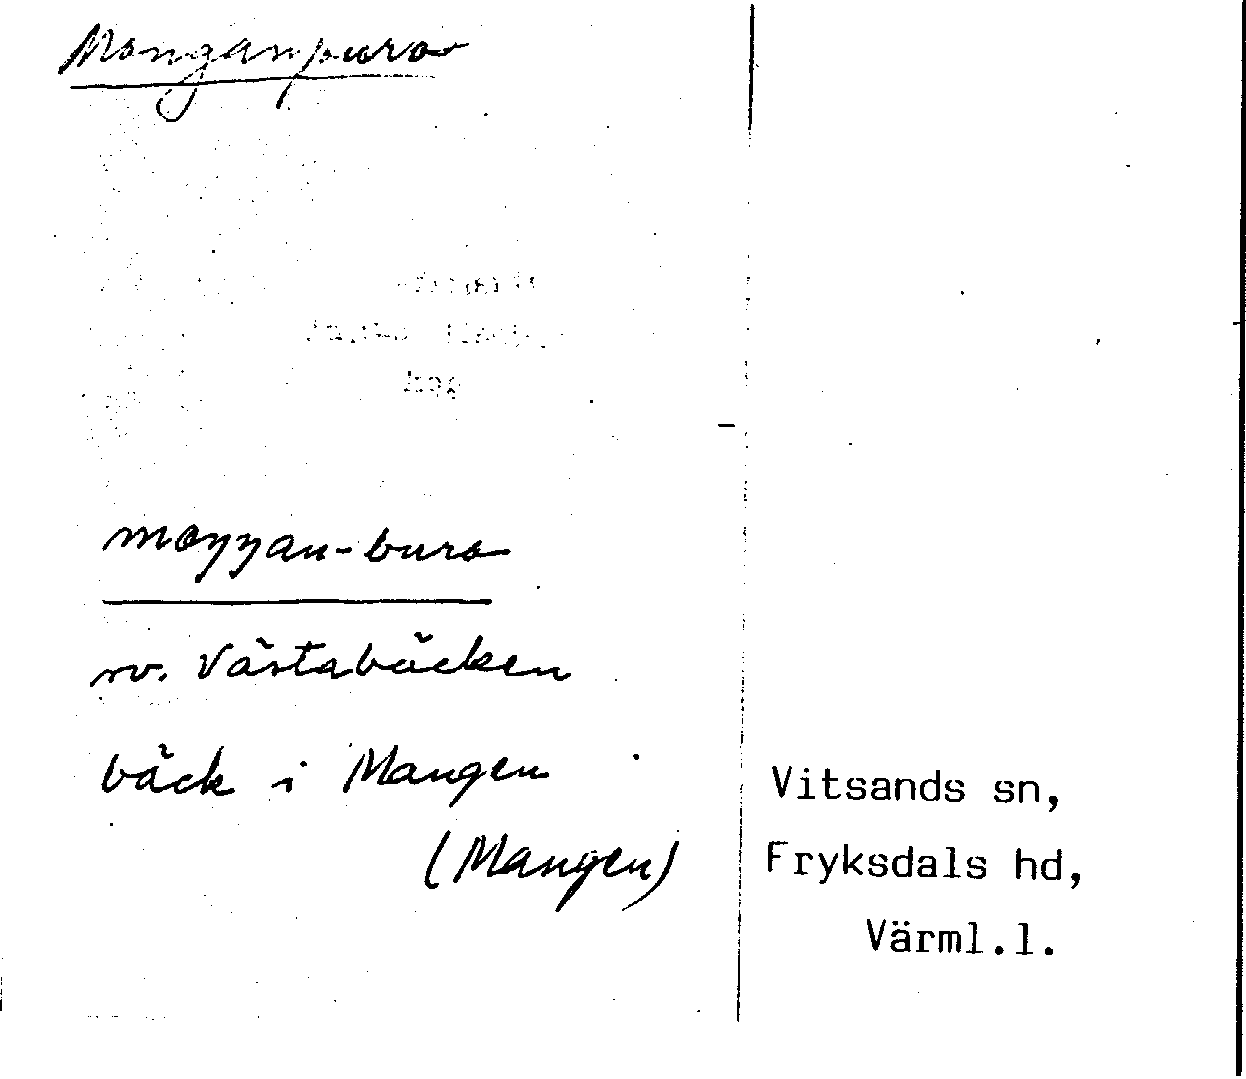 Monganpuro
moŋŋan-buro
sv. Västabäcken
bäck i Mangen
(Mangen)
Vitsands sn,
Fryksdals hd,
Värml.l.